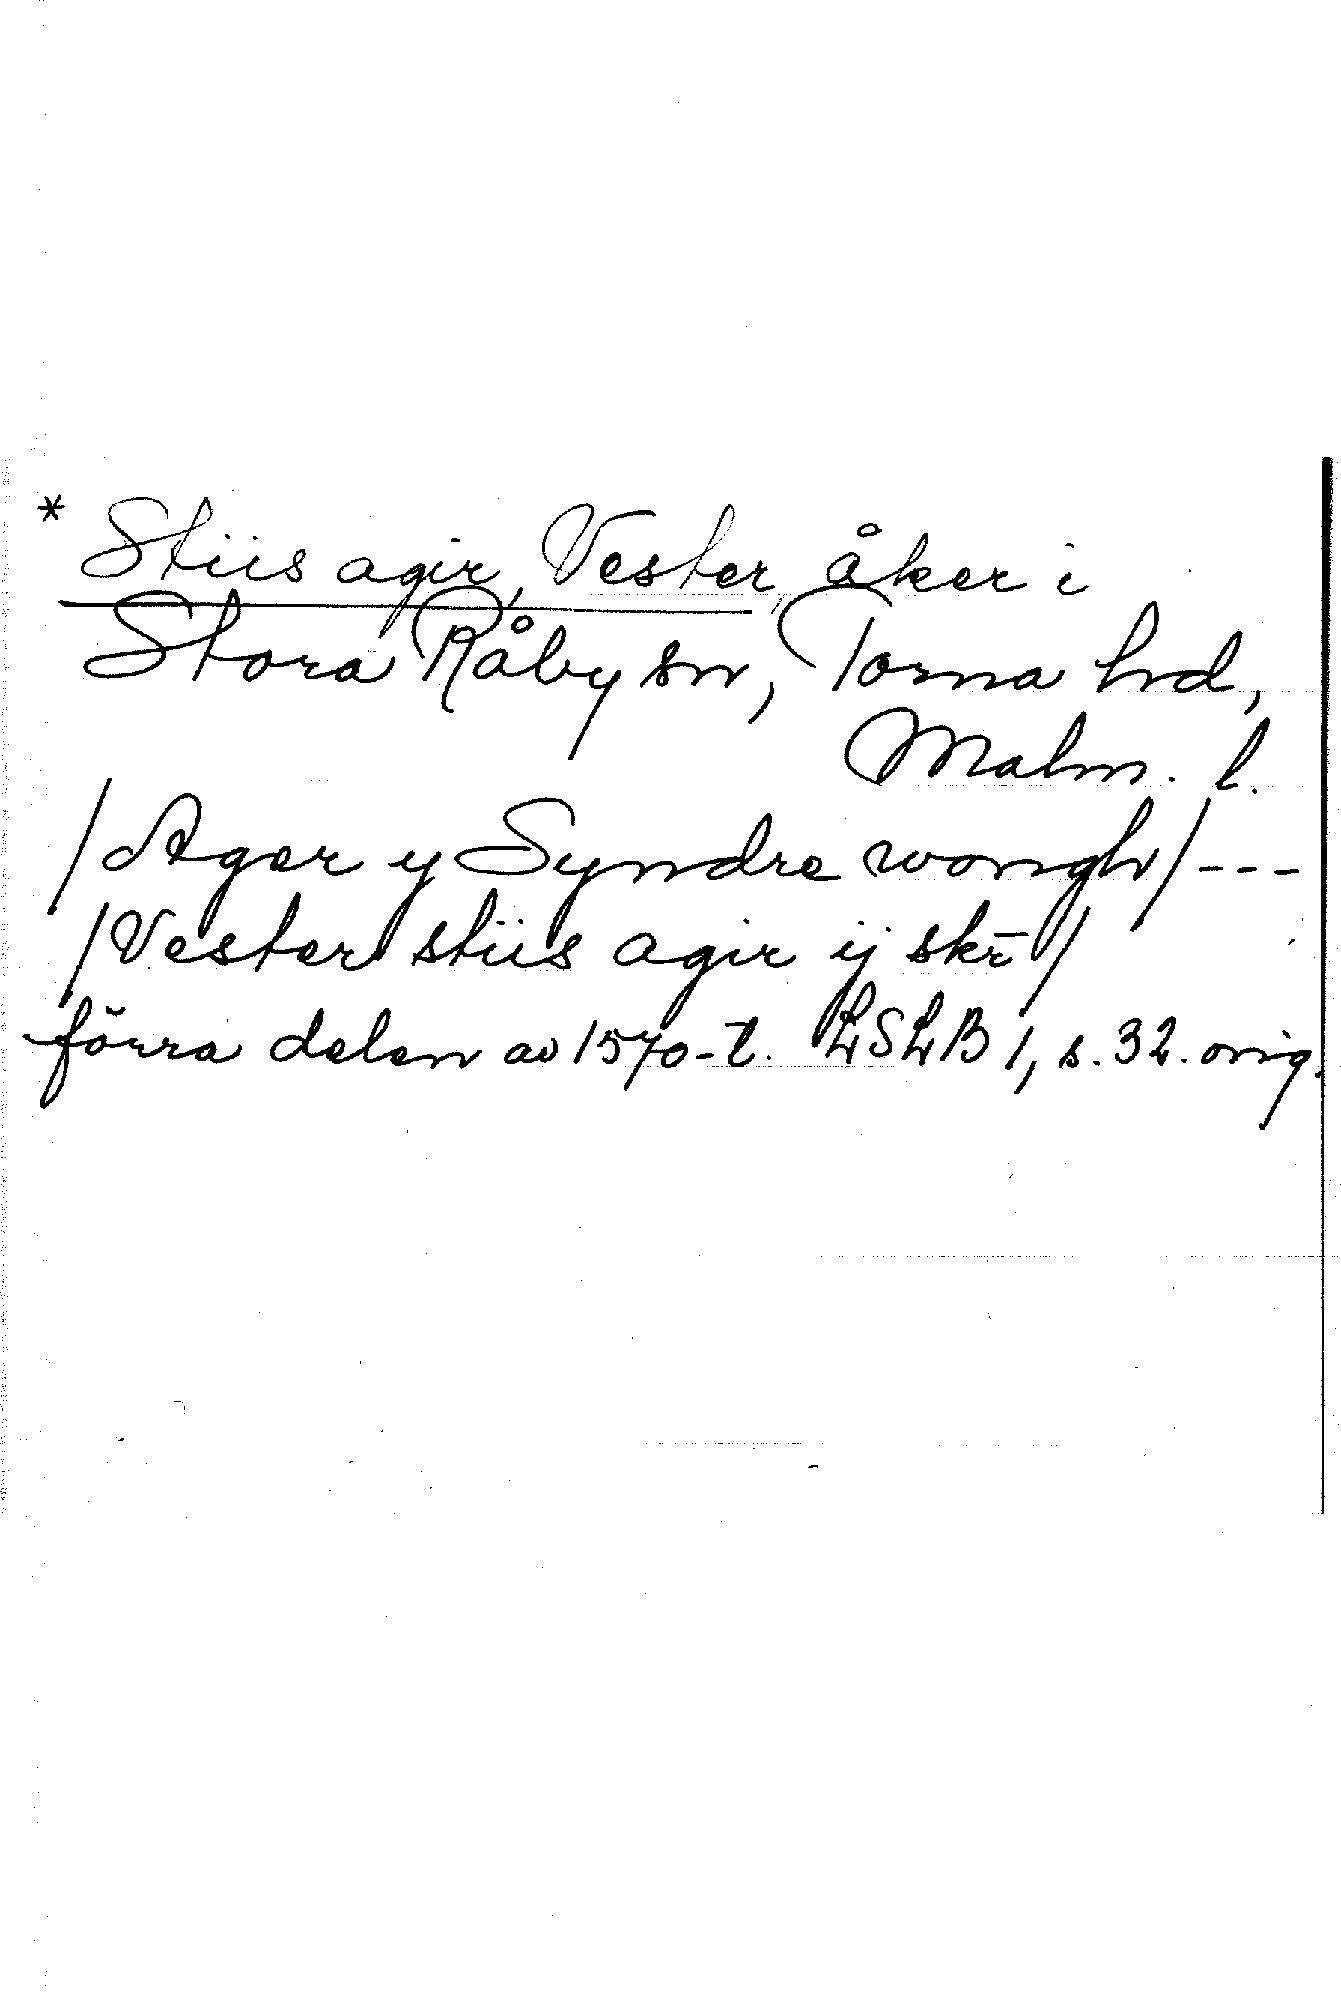 * Stiis agir, Vester, åker i
Stora Råby sn, Torna hd,
Malm. l.
/Ager y Syndre wongh/ ---
/Vester stiis agir ij skr̄/
förra delen av 1570-t. LSLB 1, s. 32. orig.